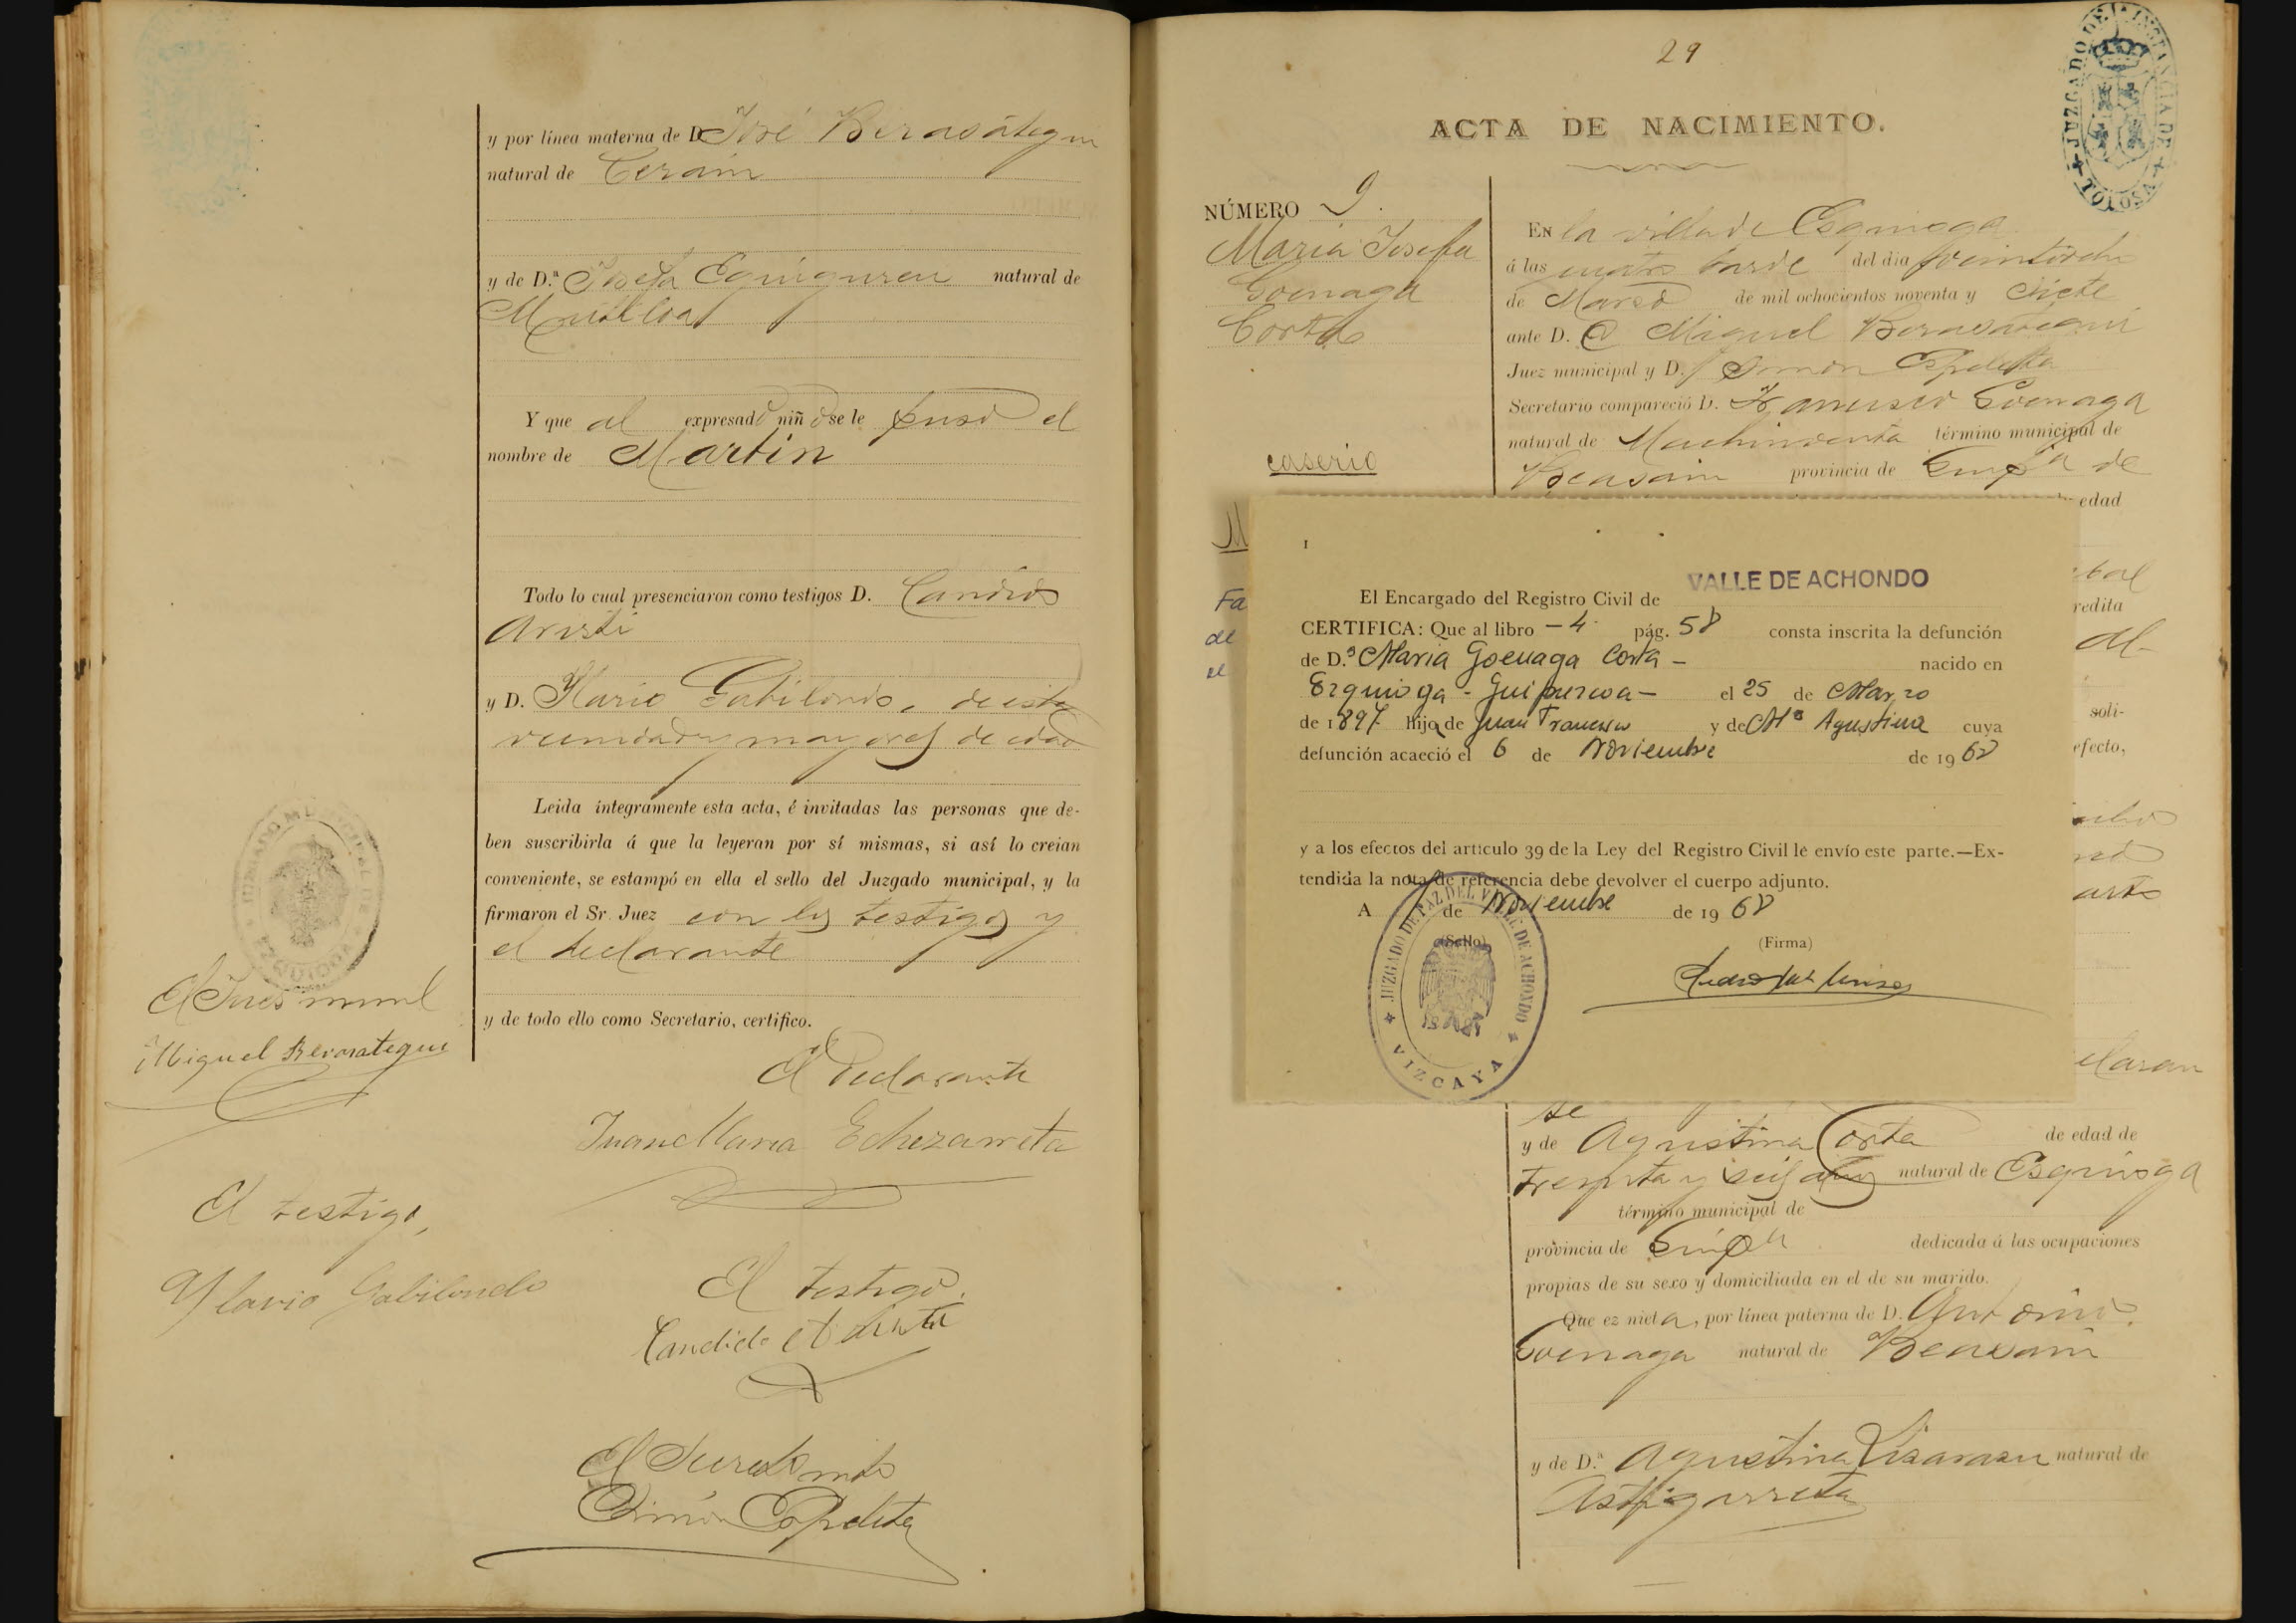 y por línea materna de D. José Berasátegui
natural de Cerain
y de D.ª Josefa Eguiguren natural de
Mutiloa
Y que al expresado niño se le puso el
nombre de Martin
Todo lo cual presenciaron como testigos D. Candido
Aristi
y D. Ylario Gabilondo, de esta
vecindad y mayores de edad
Leida íntegramente esta acta, é invitadas las personas que de-
ben suscribirla á que la leyeran por sí mismas, si así lo creian
conveniente, se estampó en ella el sello del Juzgado municipal, y la
firmaron el Sr. Juez con los testigos y
el declarante
y de todo ello como Secretario, certifico.
El Jues mpal
Miguel Berasategui
El Declarante
Juan Maria Echezarreta
El testigo,
Ylario Gabilondo
El testigo.
Candido Aristi
El Secreto
Simón Espeleta
29
JUZGADO DE 1ª INSTANCIA DE TOLOSA
ACTA DE NACIMIENTO.
NÚMERO 9.
Maria Josefa
Goenaga
Corta
caserio
EN la villa de Esquioga
á las cuatro tarde del dia veintiocho
de Marzo de mil ochocientos noventa y siete
ante D. Miguel Berasategui
Juez municipal y D. Simon Espeleta
Secretario compareció D. Francisco Goenaga
natural de Machinventa término municipal de
Beasain provincia de Guipa de
edad
M
Fa
de
el
redita
al
soli-
efecto,
claran
I
VALLE DE ACHONDO
El Encargado del Registro Civil de
CERTIFICA: Que al libro - 4 - pág. 58 consta inscrita la defunción
de D.ª Maria Goenaga Corta - nacido en
Ezquioga - Guipuzcoa - el 25 de Marzo
de 1897 hija de Juan Francisco y de Mª Agustina cuya
defunción acaeció el 6 de Noviembre de 1968
y a los efectos del articulo 39 de la Ley del Registro Civil le envío este parte.—Ex-
tendida la nota de referencia debe devolver el cuerpo adjunto.
A de Noviembre de 1968
(Sello) (Firma)
JUZGADO DE PAZ DEL VALLE DE ACHONDO
VIZCAYA
te
y de Agustina Corta de edad de
treinta y seis años natural de Esquioga
término municipal de
provincia de Guipa dedicada á las ocupaciones
propias de su sexo y domiciliada en el de su marido.
Que es nieta, por línea paterna de D. Antonio
Goenaga natural de Beasain
y de D.ª Agustina Lisarasu natural de
Astigarreta